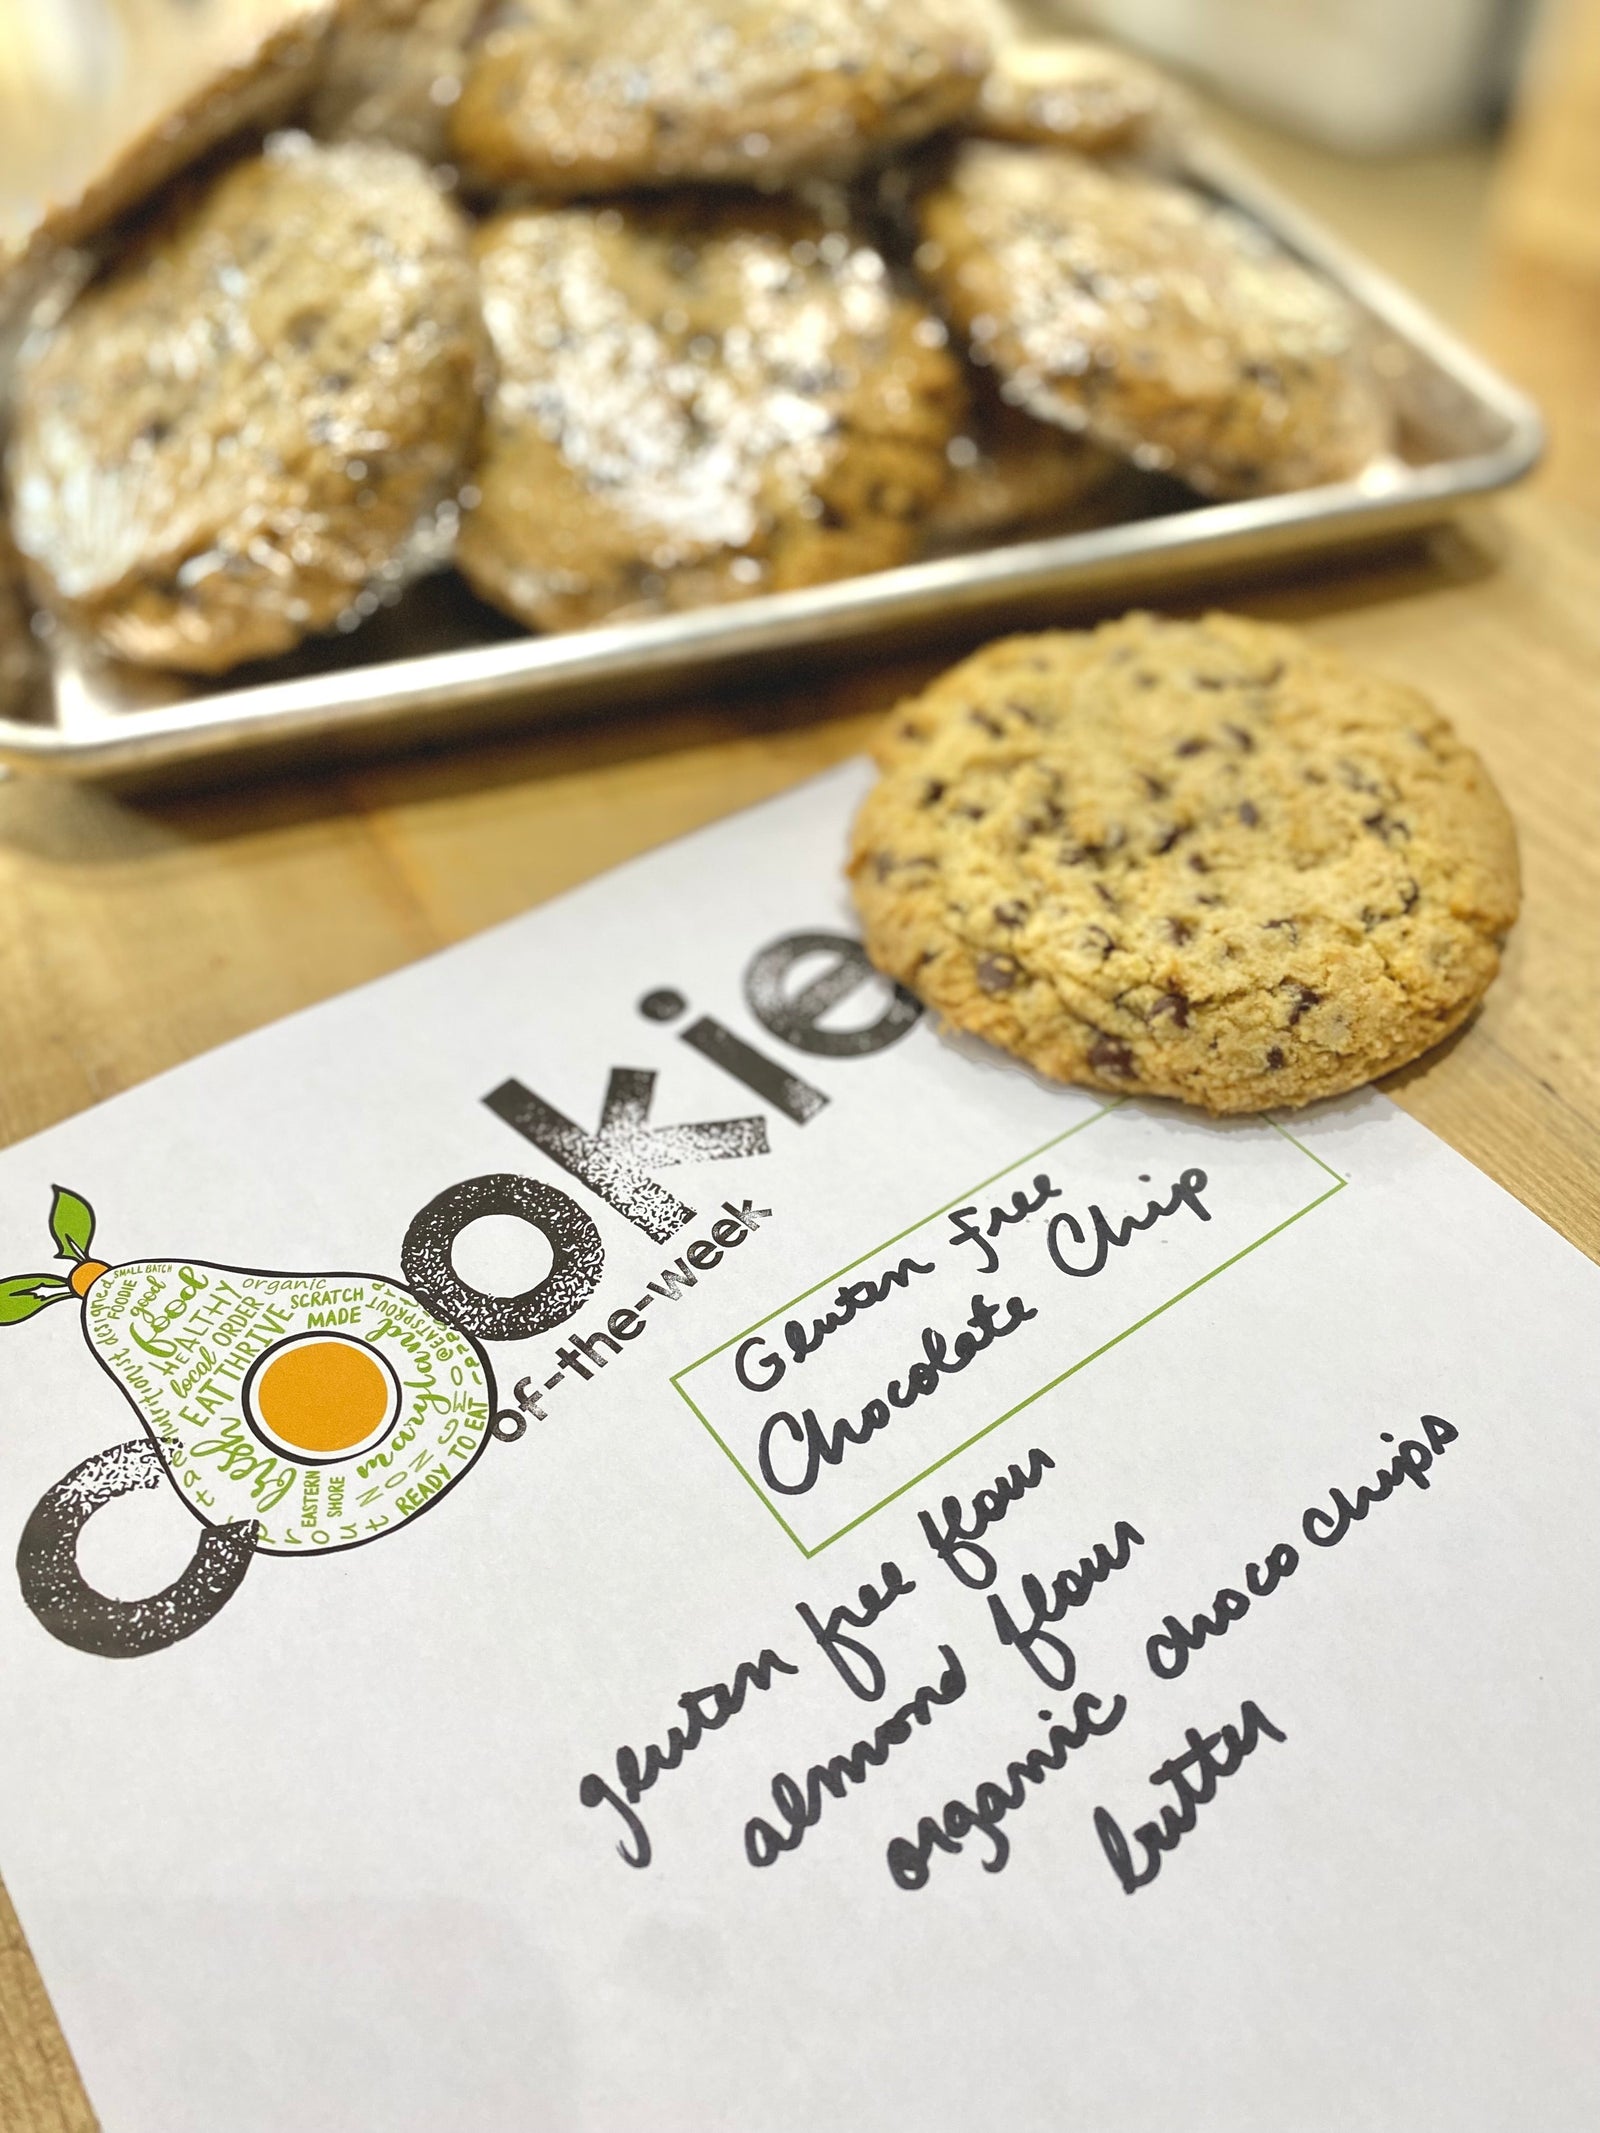 cookie
of-the-week
SMALL BATCH
FOODIE
good
food
HEALTHY
local ORDER
EAT THRIVE
organic
SCRATCH
MADE
nutritionist designed
fresh
EASTERN
SHORE
maryland
NON GMO
READY TO EAT
@EATSPROUT
Gluten Free
Chocolate Chip
gluten free flour
almond flour
organic choco chips
butter